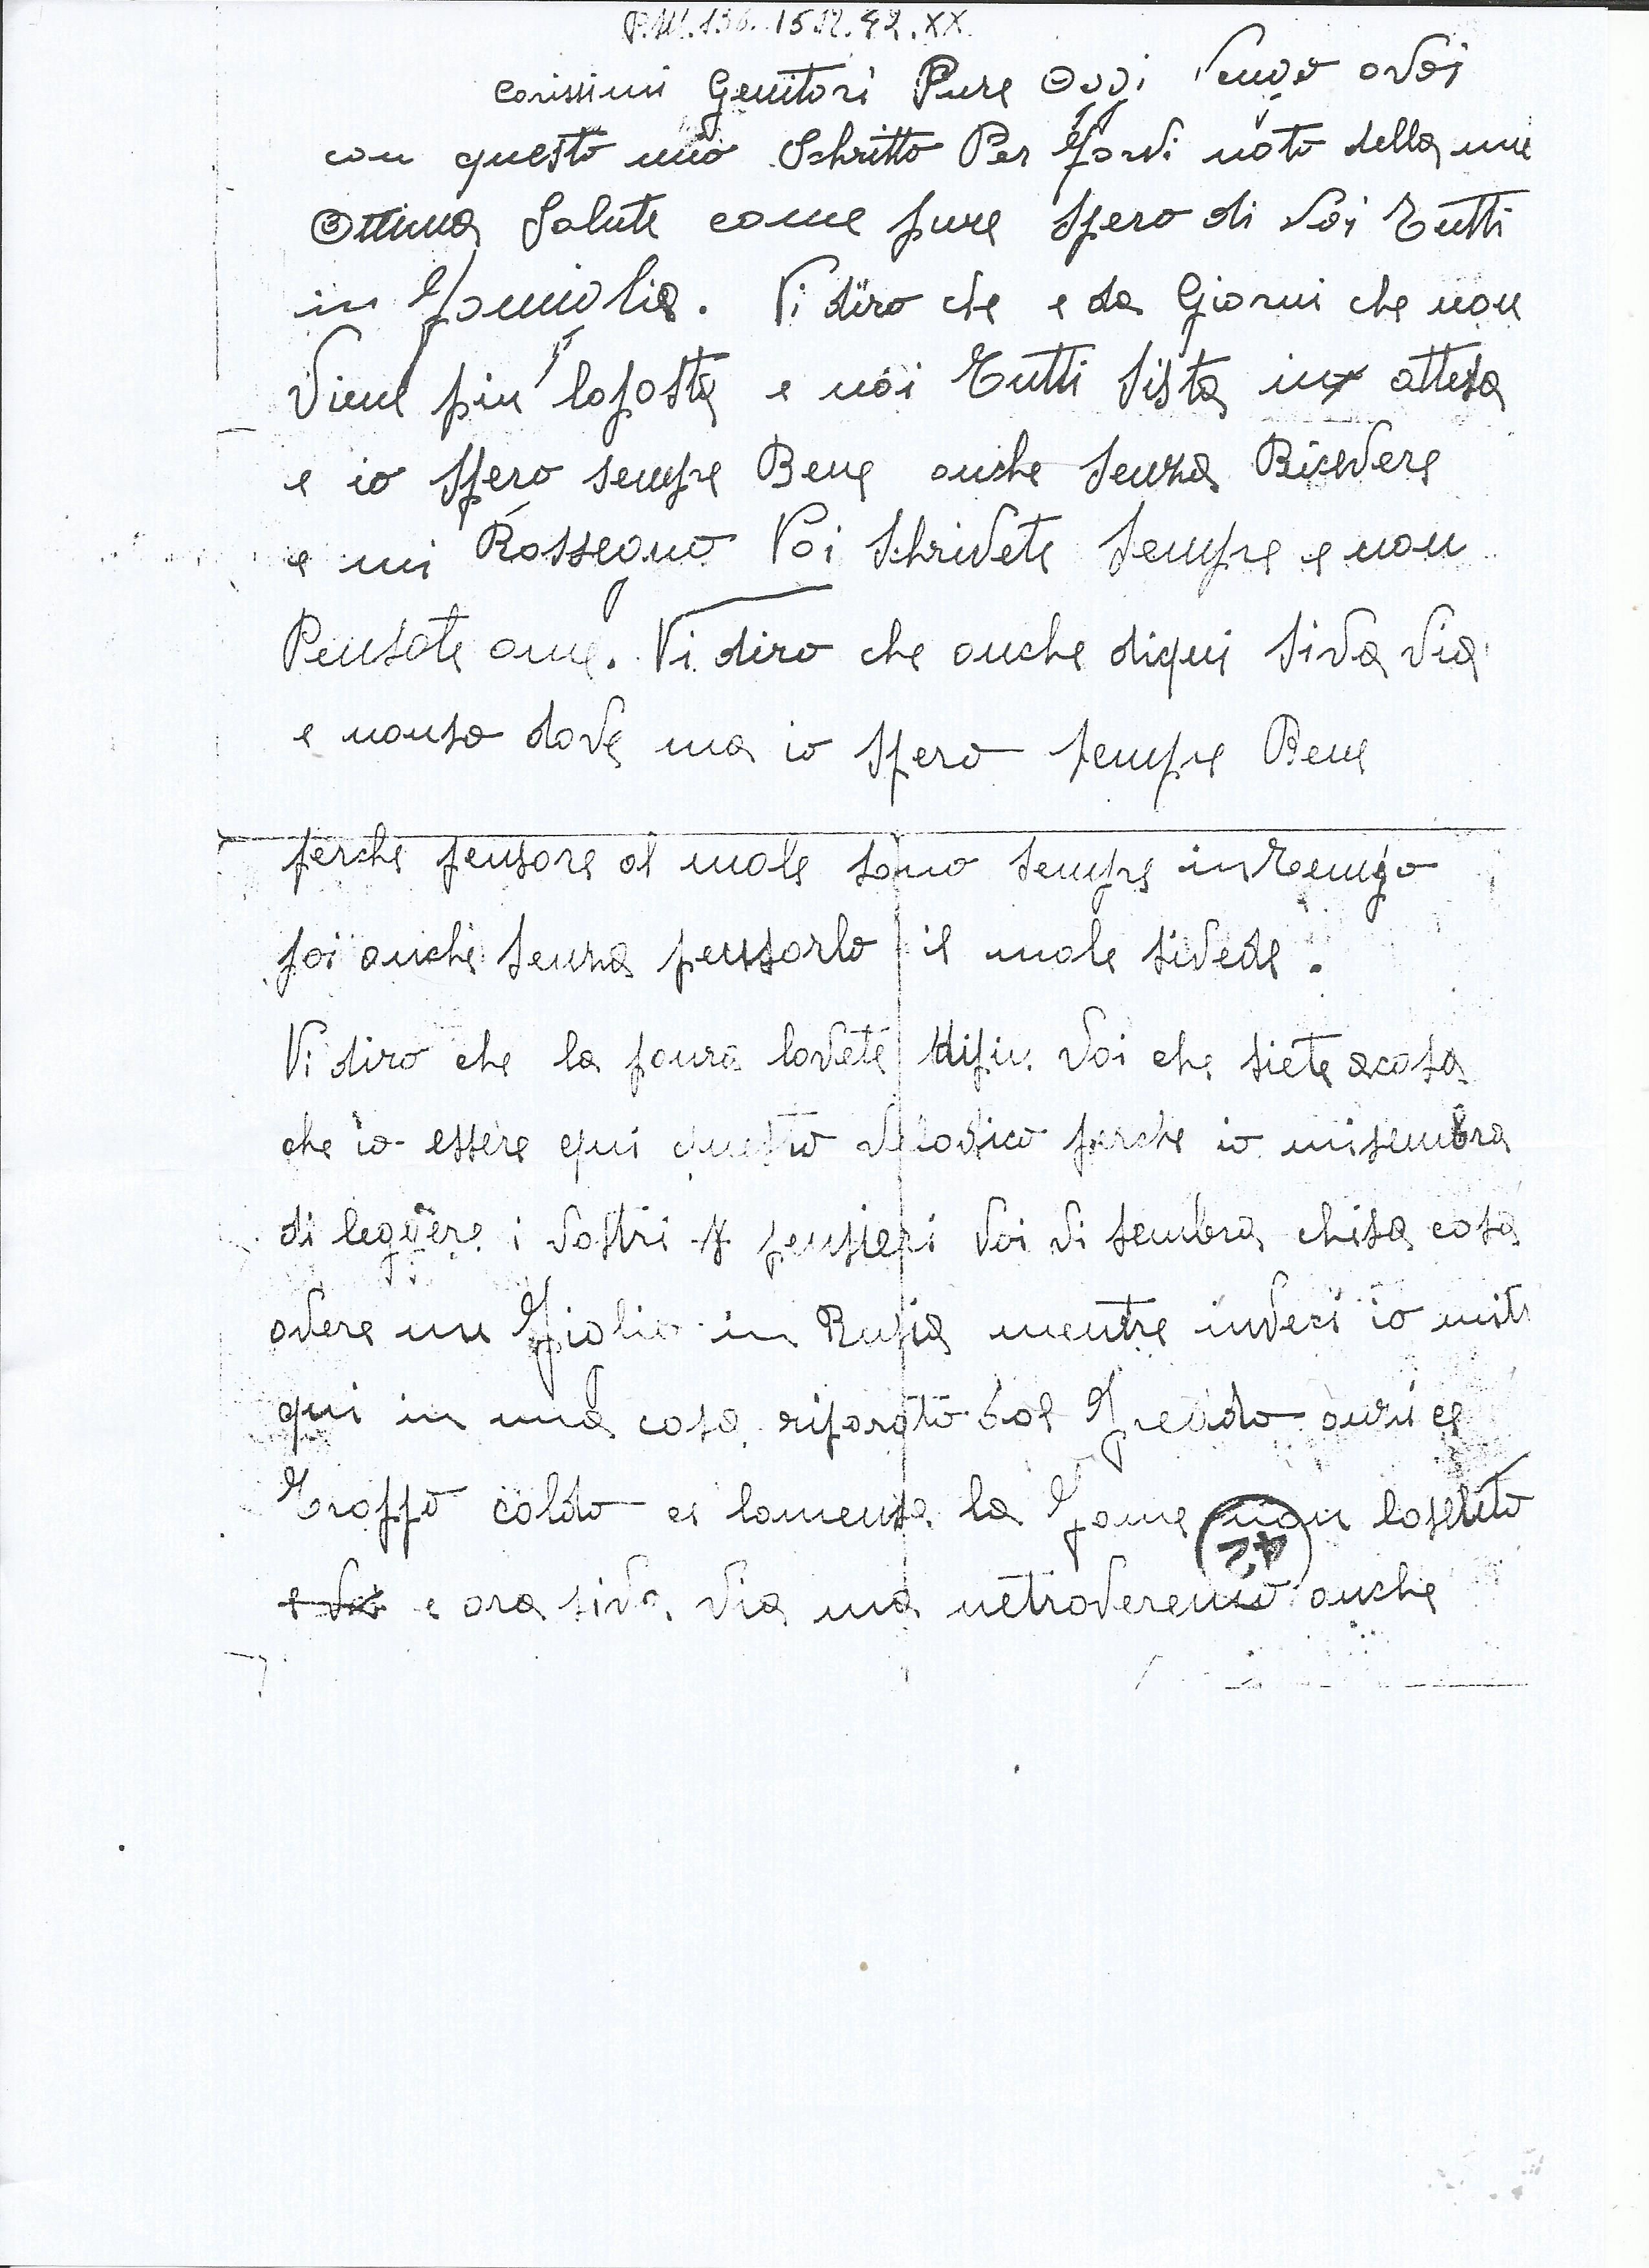 P.M. 136. 15.12.42.XX
Carissimi Genitori Pure Oggi Vengo avoi
con questo mio Schritto Per Farvi noto della mie
Ottima Salute come pure Spero di Voi Tutti
in Famiglia. Vi diro che e da Giorni che non
Viene piu laposta e noi Tutti Sista in attesa
e io Spero sempre Bene anche Senza Ricevere
e mi Rassegno Voi Schrivete Sempre e non
Pensate ame. Vi diro che anche diqui Siva via
e nonso dove ma io Spero sempre Bene
perche pensare al male siamo sempre inTempo
poi anche Senza pensarlo il male Sivede.
Vi diro che la paura lavete dipiu Voi che Siete acasa
che io essere qui questo velodico perche io misembra
di leggere i vostri pensieri Voi vi sembra chisa cosa
avere un Figlio in Rusia mentre inveci io
qui in una casa riparato dal Freddo anzi ce
Troppo caldo e lamensa la Fame non
e ora siva Via ma netroveremo anche
42